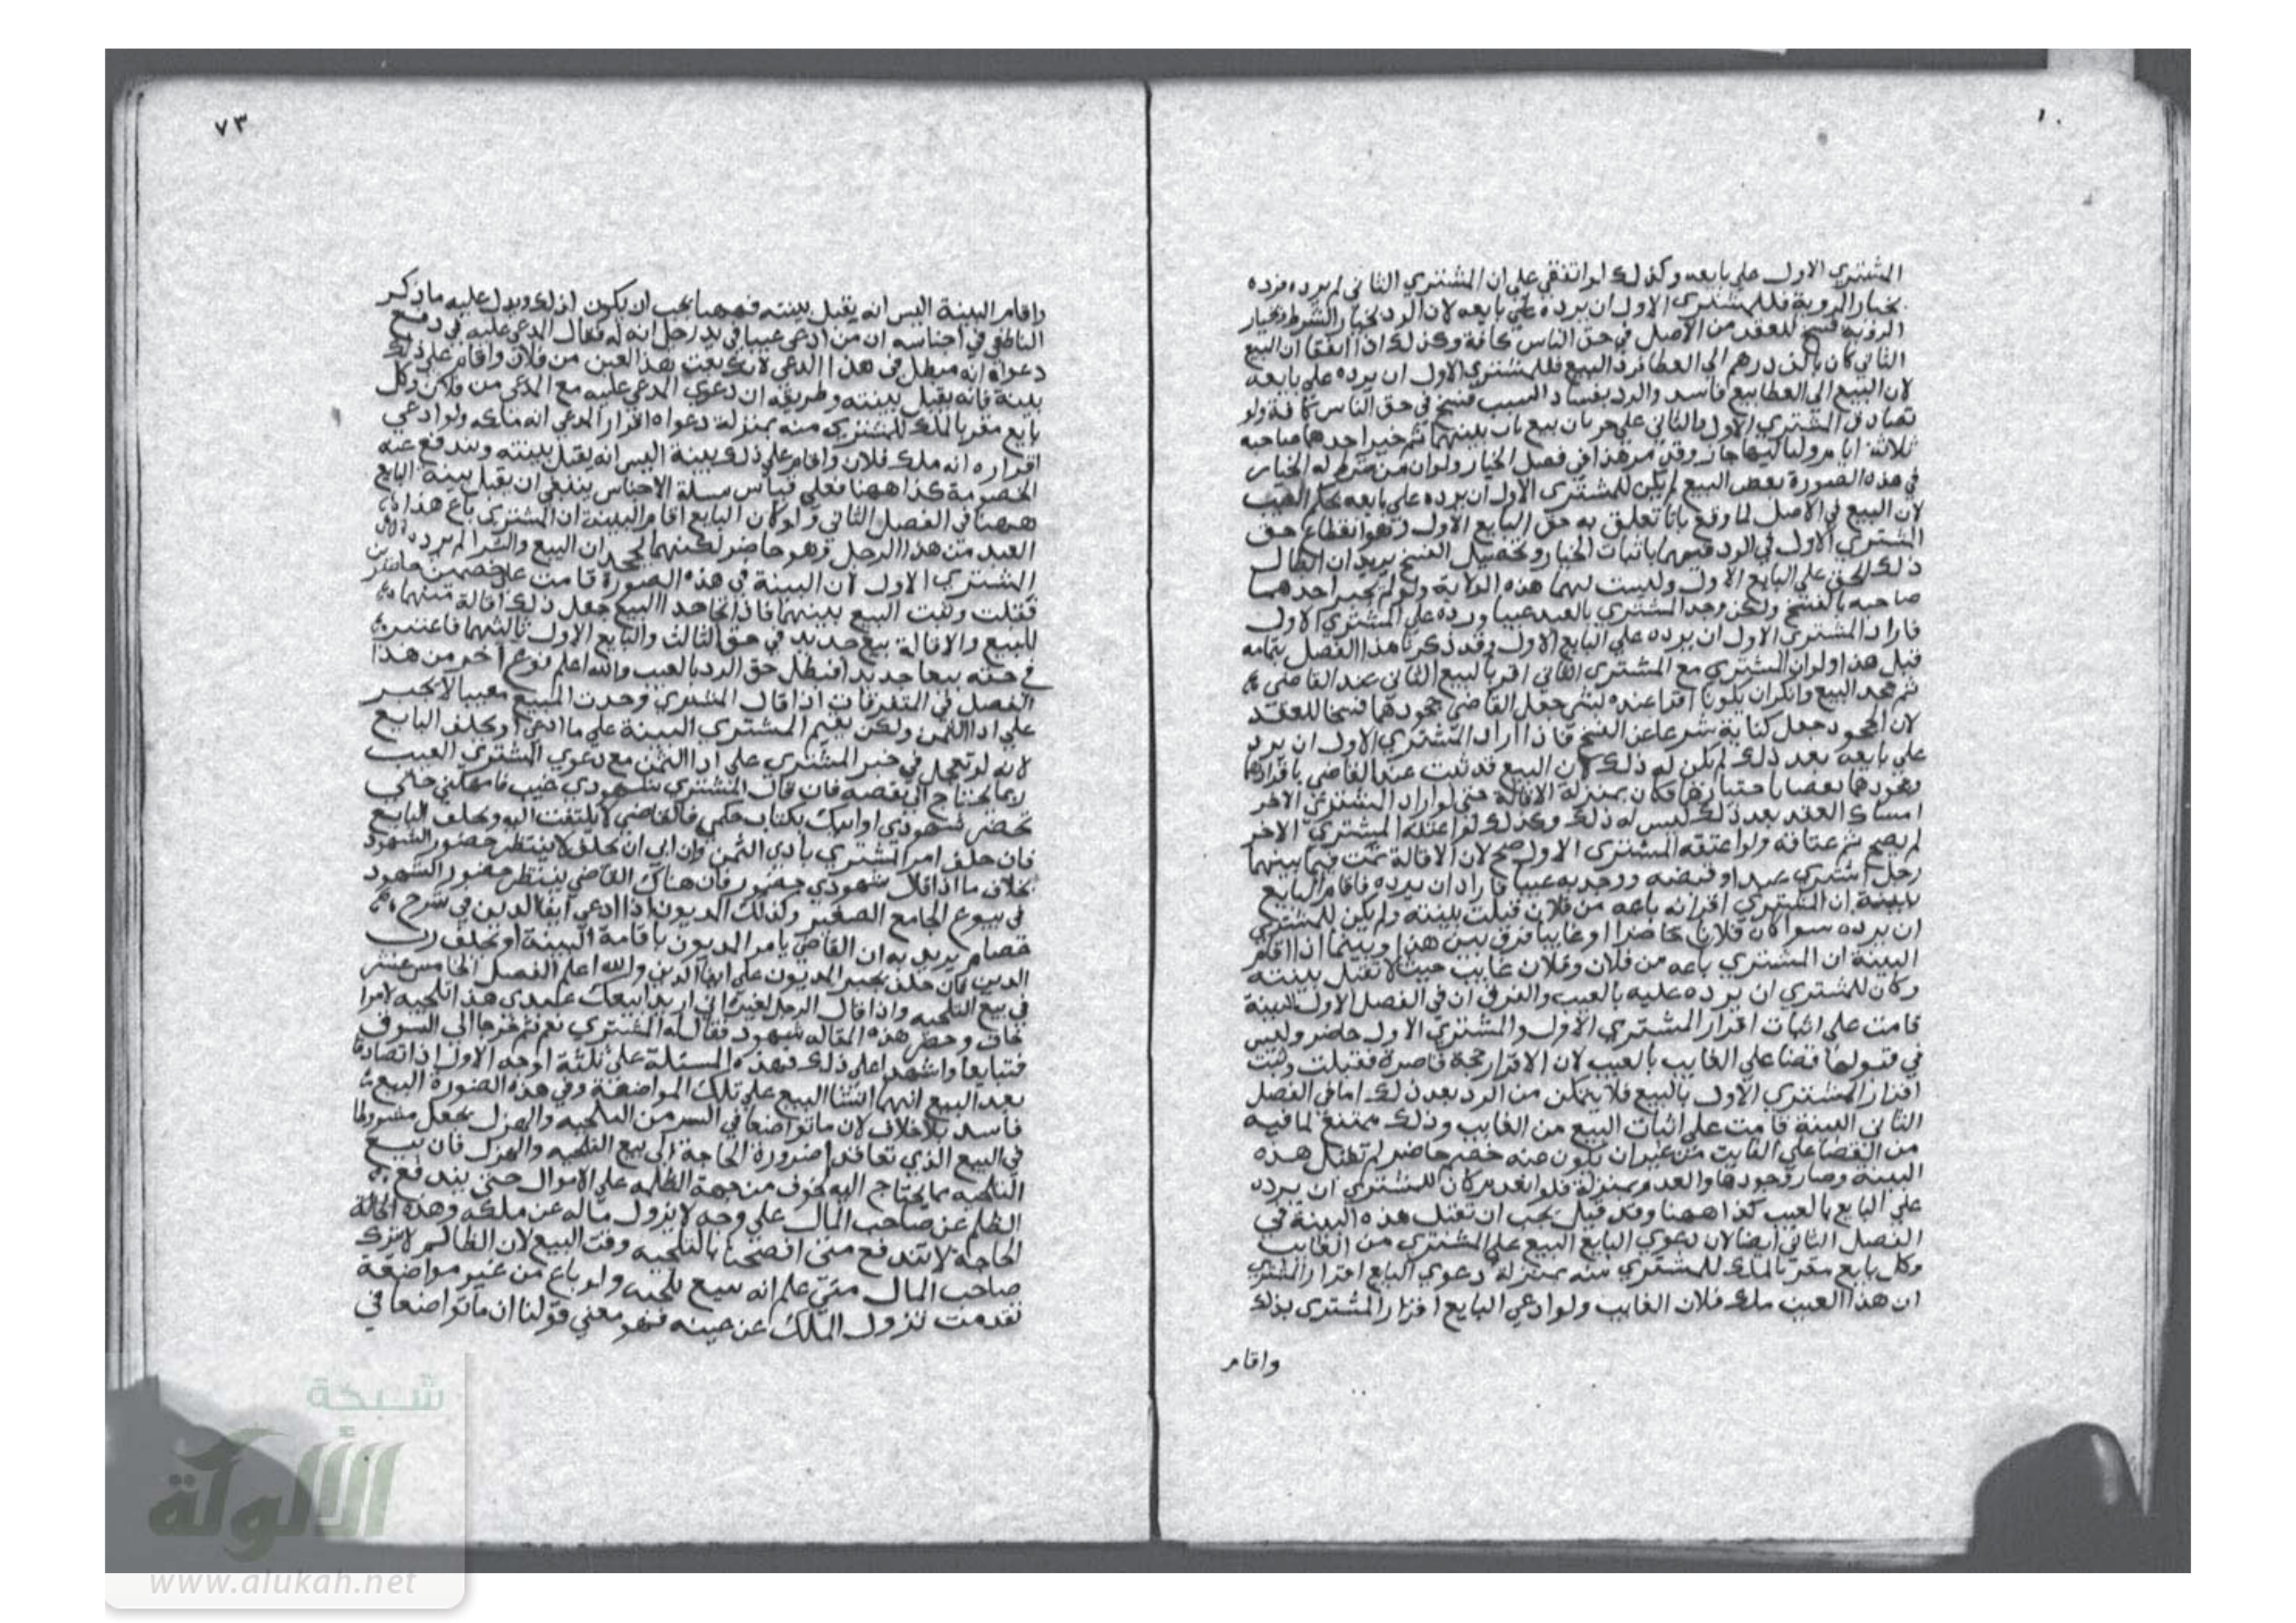 ١٠
المشتري الاول على بايعه وكذلك لو اتفقا على ان المشتري الثاني لم يرده فرده
بخيار الروية فللمشتري الاول ان يرده على بايعه لان الرد بخيار الشرط وبخيار
الروية فسخ للعقد من الاصل في حق الناس كافة وكذلك اذا اتفقا ان البيع
الثاني كان بالف درهم الى العطا فرد البيع فللمشتري الاول ان يرده على بايعه
لان البيع الى العطا بيع فاسد والرد بفساد السبب فسخ في حق الناس كافة ولو
تصادق المشتري الاول والثاني على جريان بيع بات بينهما ثم خير احدهما صاحبه
ثلاثة ايام ولياليها جاز وقد مر هذا في فصل الخيار ولو ان من شرط له الخيار
في هذه الصورة نقض البيع لم يكن للمشتري الاول ان يرده على بايعه بحكم العيب
لان البيع في الاصل لما وقع باتا تعلق به حق البايع الاول وهو انقطاع حق
المشتري الاول في الرد فهما باثبات الخيار وتحصيل الفسخ يريدان ابطال
ذلك الحق على البايع الاول وليست لهما هذه الولاية ولو لم يخير احدهما
صاحبه بالفسخ ولكن وجد المشتري بالعبد عيبا ورده على المشتري الاول
فاراد المشتري الاول ان يرده على البايع الاول وقد ذكرنا هذا الفصل بتمامه
قبل هذا ولو ان المشتري مع المشتري الثاني اقر بالبيع الثاني عند القاضي
ثم جحد البيع وانكرا ان يكونا اقرا عنده بشي جعل القاضي جحودهما فسخا للعقد
لان الجحود جعل كناية شرعا عن الفسخ فاذا اراد المشتري الاول ان يرد
على بايعه بعد ذلك لم يكن له ذلك لان البيع قد ثبت عند القاضي باقرارهما
وجحودهما نقضا باختيارهما فكان بمنزلة الاقالة حتى لو اراد المشتري الاخر
امساك العبد بعد ذلك ليس له ذلك وكذلك لو اعتقه المشتري الاخر
لم يصح عتاقه ولو اعتقه المشتري الاول صح لان الاقالة تمت فيما بينهما
رجل اشترى عبدا وقبضه ووجد به عيبا فاراد ان يرده فاقام البايع
بينة ان المشتري اقر انه باعه من فلان قبلت بينته ولم يكن للمشتري
ان يرده سوا كان فلان حاضرا او غايبا فرق بين هذا وبينما اذا اقام
البينة ان المشتري باعه من فلان وفلان غايب حيث لا تقبل بينته
وكان للمشتري ان يرده عليه بالعيب والفرق ان في الفصل الاول البينة
قامت على اثبات اقرار المشتري الاول والمشتري الاول حاضر وليس
في قبولها قضا على الغايب بالعيب لان الاقرار حجة قاصرة فقبلت وثبت
اقرار المشتري الاول بالبيع فلا يتمكن من الرد بعد ذلك اما في الفصل
الثاني البينة قامت على اثبات البيع من الغايب وذلك ممتنع لما فيه
من القضا على الغايب من غير ان يكون عنه خصم حاضر لم تقبل هذه
البينة وصار وجودها والعدم بمنزلة فلو انعدم كان للمشتري ان يرده
على البايع بالعيب كذا ههنا وقد قيل يجب ان تقبل هذه البينة في
الفصل الثاني ايضا لان دعوي البايع البيع على المشتري من الغايب
وكل بايع مقر بالملك للمشتري منه بمنزلة دعوي البايع اقرار المشتري
ان هذا العيب ملك فلان الغايب ولو ادعي البايع اقرار المشتري بذلك
واقام
٧٣
واقام البينة اليس انه يقبل بينته فههنا يجب ان يكون لذلك ويدل عليه ما ذكر
الناطفي في اجناسه ان من ادعى عينا في يد رجل انه له فقال المدعى عليه في دفع
دعواه انه مبطل في هذا الدعى لانك بعت هذا العين من فلان واقام على ذلك
بينة فانه يقبل بينته وطريقه ان دعوي المدعى عليه مع المدعى من فلان وكل
بايع مقر بالملك للمشتري منه بمنزلة دعواه اقرار المدعي انه ملكه ولو ادعي
اقراره انه ملك فلان واقام على ذلك بينة اليس انه يقبل بينته وتندفع عنه
الخصومة كذا ههنا فعلى قياس مسلة الاجناس ينبغي ان يقبل بينة البايع
ههنا في الفصل الثاني ولو كان البايع اقام البينة ان المشتري باع هذا
العبد من هذا الرجل وهو حاضر لكنهما يجحدان البيع والشرا لم يرده
المشتري الاول لان البينة في هذه الصورة قامت على خصمين حاضرين
فقبلت وثبت البيع بينهما فاذا تجاحدا البيع جعل ذلك اقالة منهما
للبيع والاقالة بيع جديد في حق الثالث والبايع الاول ثالثهما فاعتبر
في حقه بيعا جديدا فبطل حق الرد بالعيب والله اعلم نوع اخر من هذا
الفصل في المتفرقات اذا قال المشتري وجدت المبيع معيبا لا يجبر
على ادا الثمن ولكن يقيم المشتري البينة على ما ادعى او يحلف البايع
لانه لو تعجل في جبر المشتري على ادا الثمن مع دعوي المشتري العيب
لربما يحتاج الى نقضه فان قال المشتري شهودي غيب فامهلني حتى
تحضر شهودي او اتيك بكتاب حكمي فالقاضي لا يلتفت اليه ويحلف البايع
فان حلف امر المشتري بادا الثمن وان ابى ان يحلف لا ينتظر حضور الشهود
بخلاف ما اذا قال شهودي حضور فان هناك القاضي ينتظر حضور الشهود
في بيوع الجامع الصغير وكذلك المديون اذا ادعي ايفا الدين في شرح
عصام يريد به ان القاضي يامر المديون باقامة البينة او تحلف رب
الدين فان حلف يجبر المديون على ايفا الدين والله اعلم الفصل الخامس عشر
في بيع التلجيه واذا قال الرجل لغيره اني اريد ابيعك عبدي هذا تلجيه لامر
اخاف وحضر هذه المقاله شهود فقال له المشتري نعم ثم خرجا الى السوق
فتبايعا واشهدا على ذلك فهذه المسئلة على ثلثة اوجه الاول اذا تصادقا
بعد البيع انهما انشئا البيع على تلك المواضعة وفي هذه الصورة البيع
فاسد بلا خلاف لان ما تواضعا في السر من التلجيه والهزل يجعل مشروطا
في البيع الذي تعاقدا ضرورة الحاجة الى بيع التلجيه والهزل فان بيع
التلجيه مما يحتاج اليه لخوف من جهة الظلمه على الاموال حتى يندفع
الظلم عن صاحب المال على وجه لا يزول ماله عن ملكه وهذه الحالة
الحاجة لا تندفع متى افصحا بالتلجيه وقت البيع لان الظالم لا يترك
صاحب المال متى علم انه بيع تلجئه ولو باع من غير مواضعة
تقدمت تزول الملك عن عينه فهو معني قولنا ان ما تواضعا في
شبكة
الألوكة
www.alukah.net